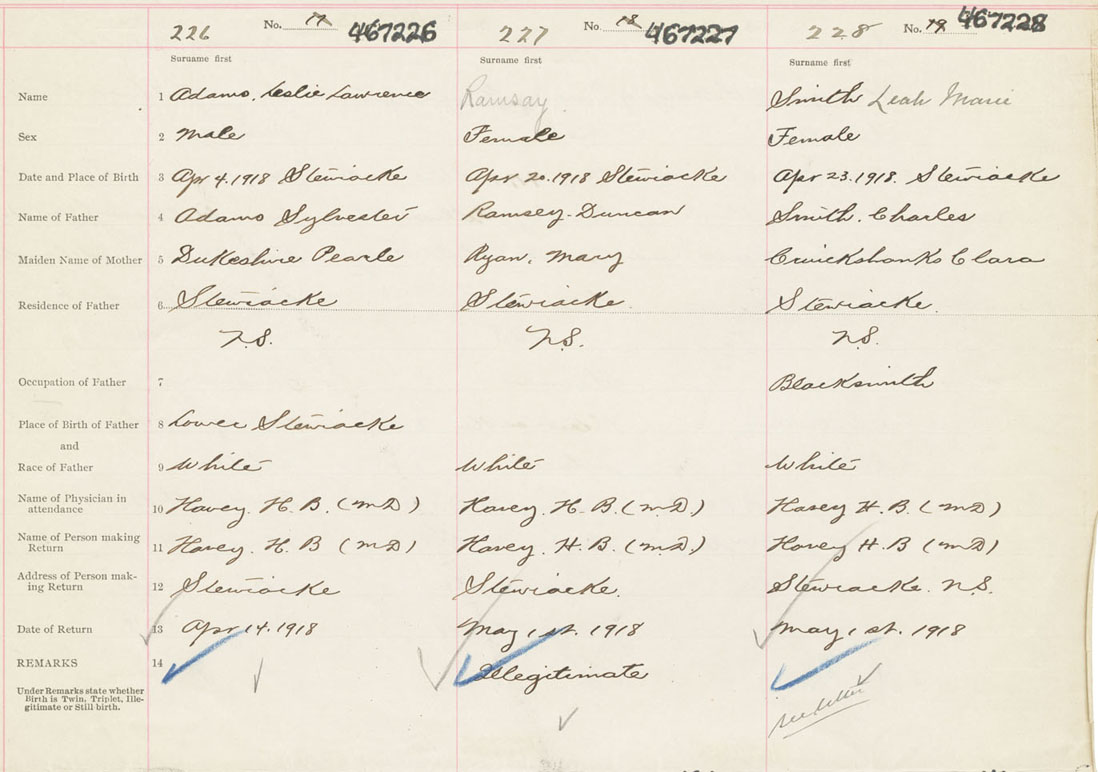 226 No. 17 467226 227 No. 18 467227 228 No. 19 467228
Surname first Surname first Surname first
Name 1 Adams, Leslie Lawrence Ramsay Smith Leah Marie
Sex 2 Male Female Female
Date and Place of Birth 3 Apr 4. 1918 Stewiacke Apr 20. 1918 Stewiacke Apr 23. 1918. Stewiacke
Name of Father 4 Adams Sylvester Ramsey. Duncan Smith. Charles
Maiden Name of Mother 5 Dukeshire Pearle Ryan, Mary Cruickshanks Clara
Residence of Father 6 Stewiacke Stewiacke. Stewiacke.
N.S. N.S. N.S.
Occupation of Father 7 Blacksmith
Place of Birth of Father 8 Lower Stewiacke
and
Race of Father 9 White White White
Name of Physician in
attendance 10 H. B. (MD) H. B. (MD) H. B. (MD)
Name of Person making
Return 11 H. B (MD) H. B. (MD) H. B (MD)
Address of Person mak-
ing Return 12 Stewiacke Stewiacke. Stewiacke. N.S.
Date of Return 13 Apr 14. 1918 May 1st. 1918 May 1st. 1918
REMARKS 14 Illegitimate
Under Remarks state whether
Birth is Twin, Triplet, Ille-
gitimate or Still birth.
see letter